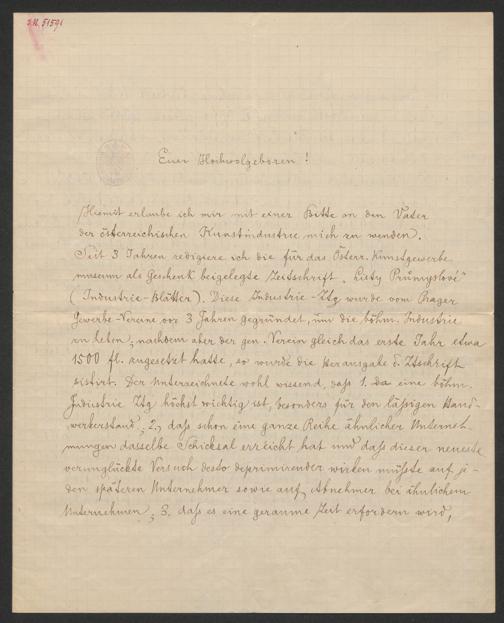 J.N. 51591
Euer Hochwolgeboren!
Hiemit erlaube ich mir mit einer Bitte an den Vater
der österreichischen Kunstindustrie mich zu wenden.
Seit 3 Jahren redigiere ich die für das Österr. Kunstgewerbe
museum als Geschenk beigelegte Zeitschrift „Listy Průmyslové"
(Industrie-Blätter). Diese Industrie-Ztg wurde vom Prager
Gewerbe-Vereine vor 3 Jahren gegründet, um die böhm. Industrie
zu heben; nachdem aber der gen. Verein gleich das erste Jahr etwa
1500 fl. zugesetzt hatte, so wurde die Herausgabe d. Ztschrift
sistirt. Der Unterzeichnete wohl wissend, daß 1. da eine böhm.
Industrie Ztg höchst wichtig ist, besonders für den lässigen Hand-
werkerstand; 2., daß schon eine ganze Reihe ähnlicher Unterneh-
mungen dasselbe Schicksal erreicht hat und daß dieser neueste
verunglückte Versuch desto deprimirender wirken müßte auf je-
den späteren Unternehmer sowie auf Abnehmer bei ähnlichem
Unternehmen; 3. daß es eine geraume Zeit erfordern wird,